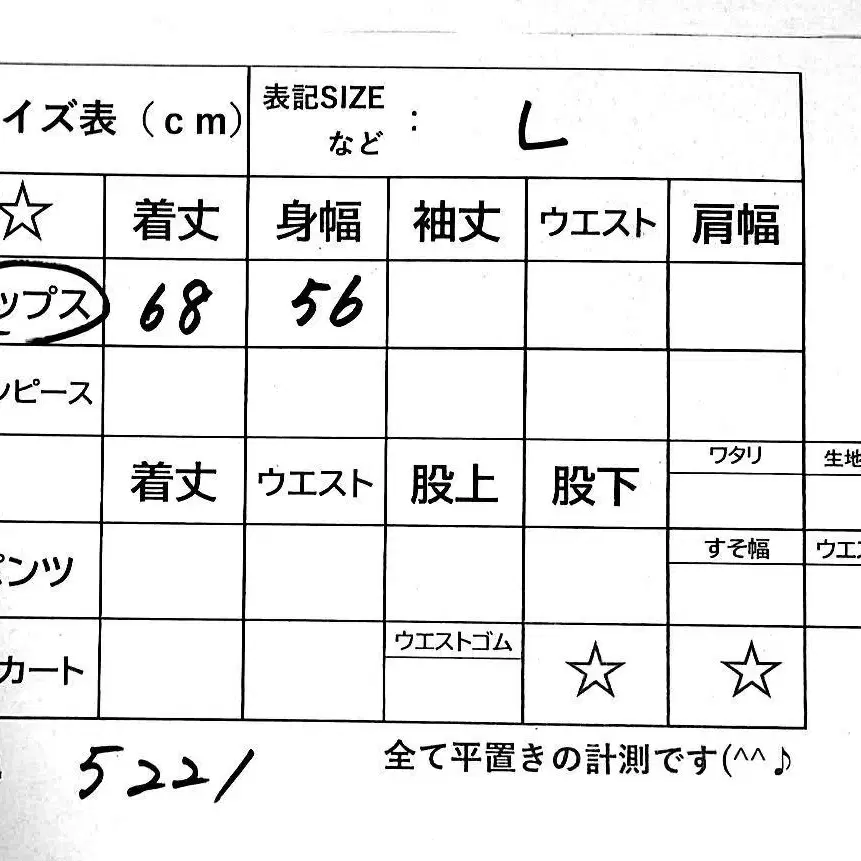 イズ表（ｃｍ）
表記SIZE
など : L
☆ 着丈 身幅 袖丈 ウエスト 肩幅
ップス 68 56
ンピース
着丈 ウエスト 股上 股下 ワタリ 生地
パンツ すそ幅 ウエス
カート ウエストゴム ☆ ☆
5221
全て平置きの計測です(^^♪